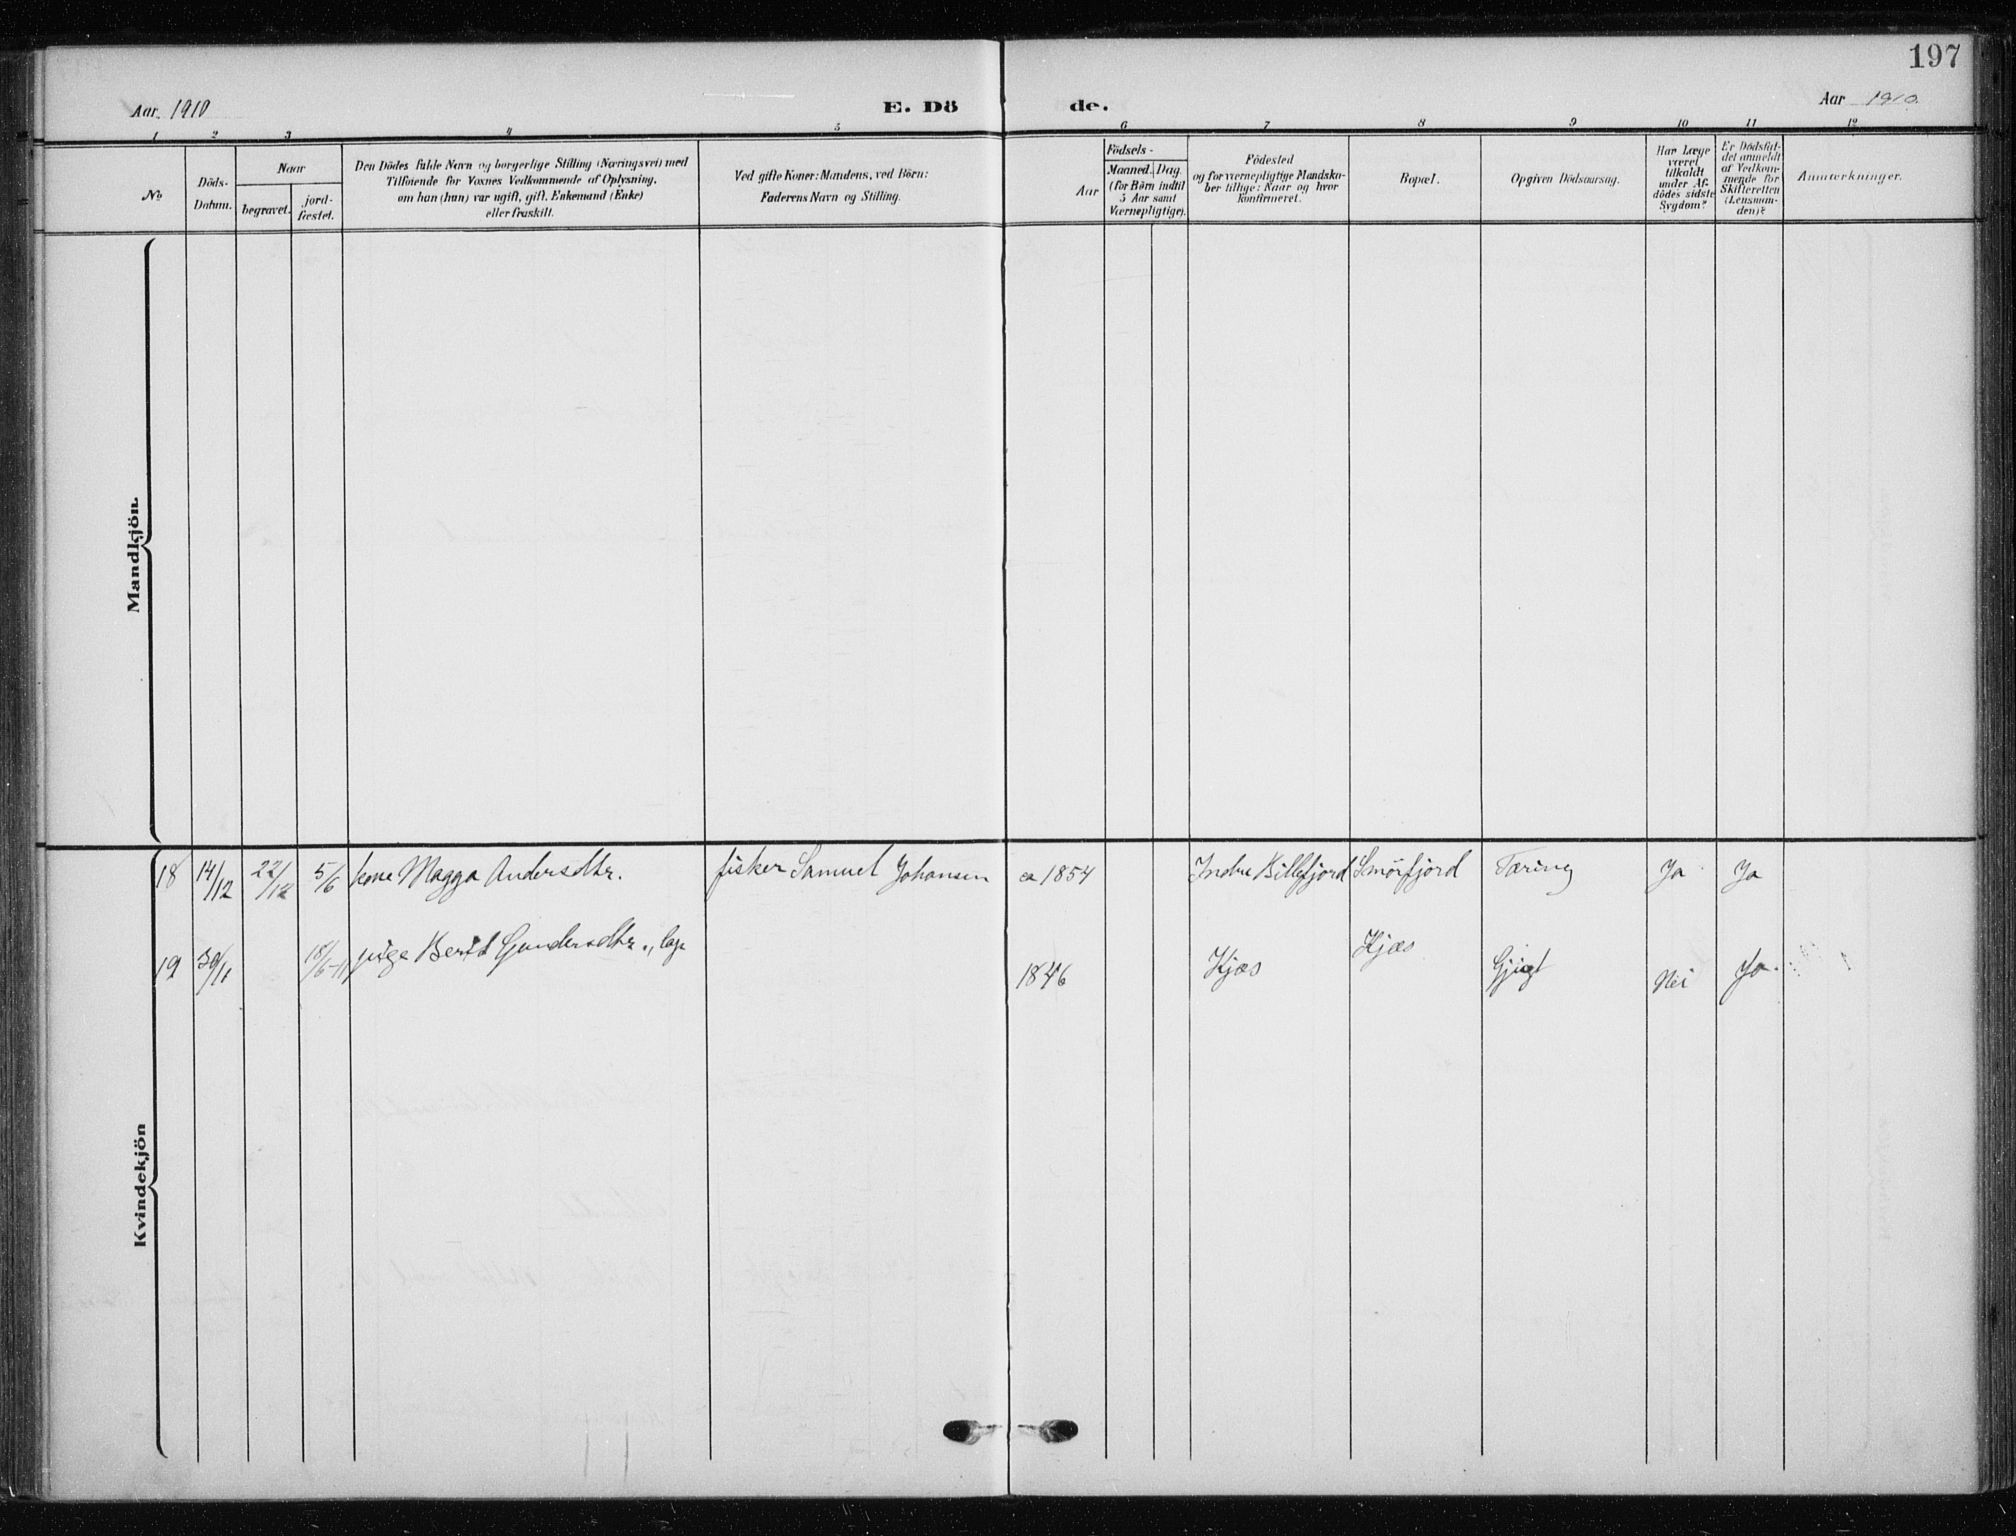 197
Aar. 1910 E. Dö de. Aar 1910.
1 2 3 4 5 6 7 8 9 10 11 12
No
Döds-
Datum.
Naar
begravet.
jord-
fæstet.
Den Dödes fulde Navn og borgerlige Stilling (Næringsvei) med
Tilföiende for Voxnes Vedkommende af Oplysning,
om han (hun) var ugift, gift, Enkemand (Enke)
eller fraskilt.
Ved gifte Koner: Mandens, ved Börn:
Faderens Navn og Stilling.
Födsels-
Aar
Maaned. Dag.
(for Börn indtil
5 Aar samt
Værnepligtige).
Födested
og for værnepligtige Mandska-
ber tillige: Naar og hvor
konfirmeret.
Bopæl.
Opgiven Dödsaarsag.
Har Læge
været
tilkaldt
under Af-
dödes sidste
Sygdom?
Er Dödsfal-
det anmeldt
af Vedkom-
mende for
Skifteretten
(Lensman-
den)?
Anmærkninger.
Mandkjön.
18 14/12 22/12 5/6 kone Magga Andersdtr. fisker Samuel Johansen ca 1854 Indre Billefjord Smörfjord Tæring Ja Ja
19 30/11 18/6-11 pige Berit Gundersdtr., lap 1846 Kjæs Kjæs Gjigt Nei Ja.
Kvindekjön